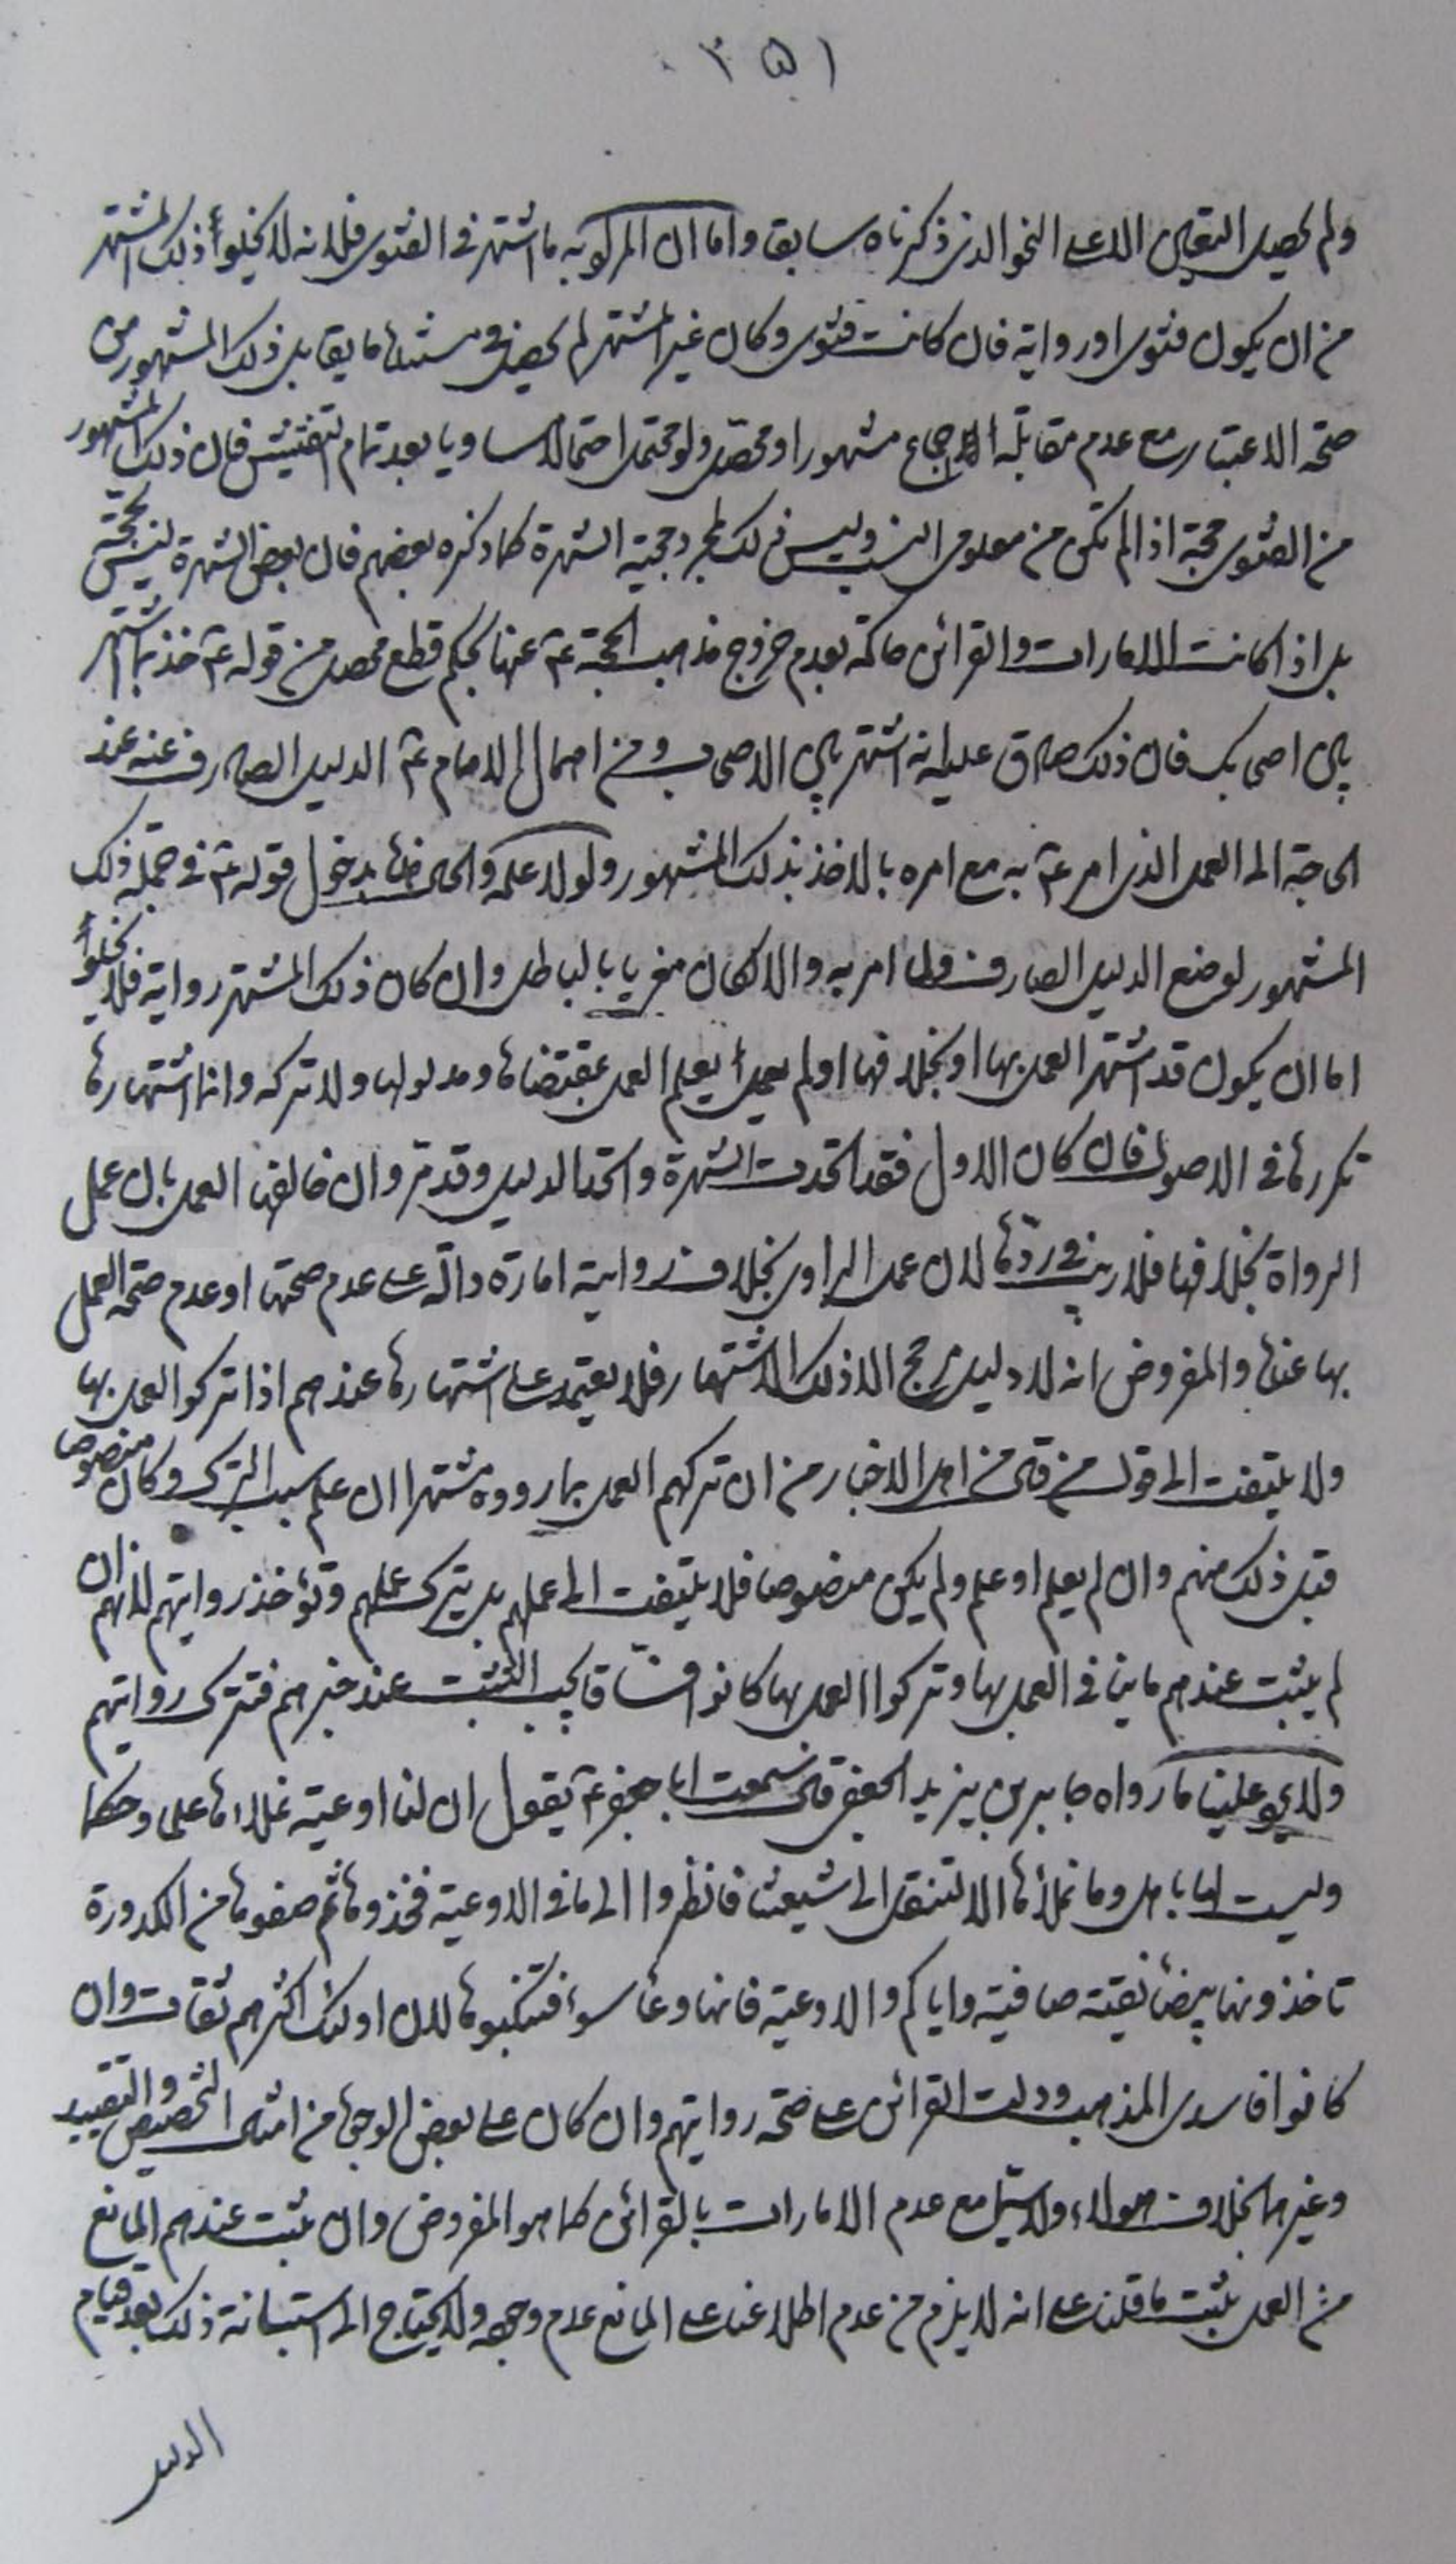 ٣٥١
ولم يحصل التعيين الا على النحو الذى ذكرناه سابقا واما ان المركوبه ما اشتهر فى الفتوى فلانه لا يخلوا ذلك المشتهر
من ان يكون فتوى او رواية فان كانت فتوى وكان غير المشتهر لم يحصل فى مسئلة ما يقابل ذلك المشهور من
صحة الاعتبار مع عدم مقابلة الاجماع مشهورا او محصلا ولو محتملا احتمالا مساويا بعد تمام التفتيش فان ذلك المشهور
من الفتوى حجة اذا لم تكن من معلومى النسب وليس ذلك لمجرد حجية الشهرة كما ذكره بعضهم فان بعض الشهرة ليس بحجة
بل اذا كانت الامارات والقرائن حاكمة بعدم خروج مذهب الحجة ع عنها بحكم قطع محصل من قوله ع خذ بما اشتهر
بين اصحابك فان ذلك صادق عليه انه اشتهر بين الاصحاب ومن اهمال الامام ع الدليل الصارف عنه عند
الحاجة الى العمل الذى امر ع به مع امره بالاخذ بذلك المشهور ولولا علمه والحال هذه بدخول قوله ع فى جملة ذلك
المشهور لوضع الدليل الصارف ولما امر به والا لكان مغريا بالباطل وان كان ذلك المشتهر رواية فلا يخلوا
اما ان يكون قد اشتهر العمل بها او بخلافها او لم يعمل او يعلم العمل بمقتضاها ومدلولها ولا تركه وانما اشتهارها
تكررها فى الاصول فان كان الاول فقد اتحدت الشهرة واتحد الدليل وقد مر وان خالفها العمل بان عمل
الرواة بخلافها فلا ريب فى ردها لان عمل الراوى بخلاف روايته امارة دالة على عدم صحتها او عدم صحة العمل
بها عنده والمفروض انه لا دليل مرجح الا ذلك الاشتهار فلا يعتمد على اشتهارها عندهم اذا تركوا العمل بها
ولا يلتفت الى قول من قال من اهل الاخبار من ان تركهم العمل بما رووه مشتهرا ان علم سبب الترك وكان منصوصا
قبل ذلك منهم وان لم يعلم او علم ولم يكن منصوصا فلا يلتفت الى عملهم بل يترك عملهم وتؤخذ روايتهم لانهم ان
لم يثبت عندهم ما ينافى العمل بها وتركوا العمل بها كانوا فساقا يجب التثبت عند خبرهم فتترك روايتهم
ولا يرد علينا ما رواه جابر بن يزيد الجعفى قال سمعت ابا جعفر ع يقول ان لنا اوعية نملأها علما وحكما
وليست لها باهل وما نملأها الا لتنقل الى شيعتنا فانظروا الى ما فى الاوعية فخذوها ثم صفوها من الكدورة
تاخذونها بيضاء نقية صافية واياكم والاوعية فانها وعاء سوء فتنكبوها لان اولئك اكثرهم ثقات وان
كانوا فاسدى المذهب ودلت القرائن على صحة روايتهم وان كان على بعض الوجوه من امثال التخصيص والتقييد
وغيرهما بخلاف هؤلاء ولا سيما مع عدم الامارات بالقرائن كما هو المفروض وان ثبت عندهم المانع
من العمل يثبت ما قلنا على انه لا يلزم من عدم اطلاعنا على المانع عدم وجوده ولا يحتاج الى استبانة ذلك بعد قيام
الدليل